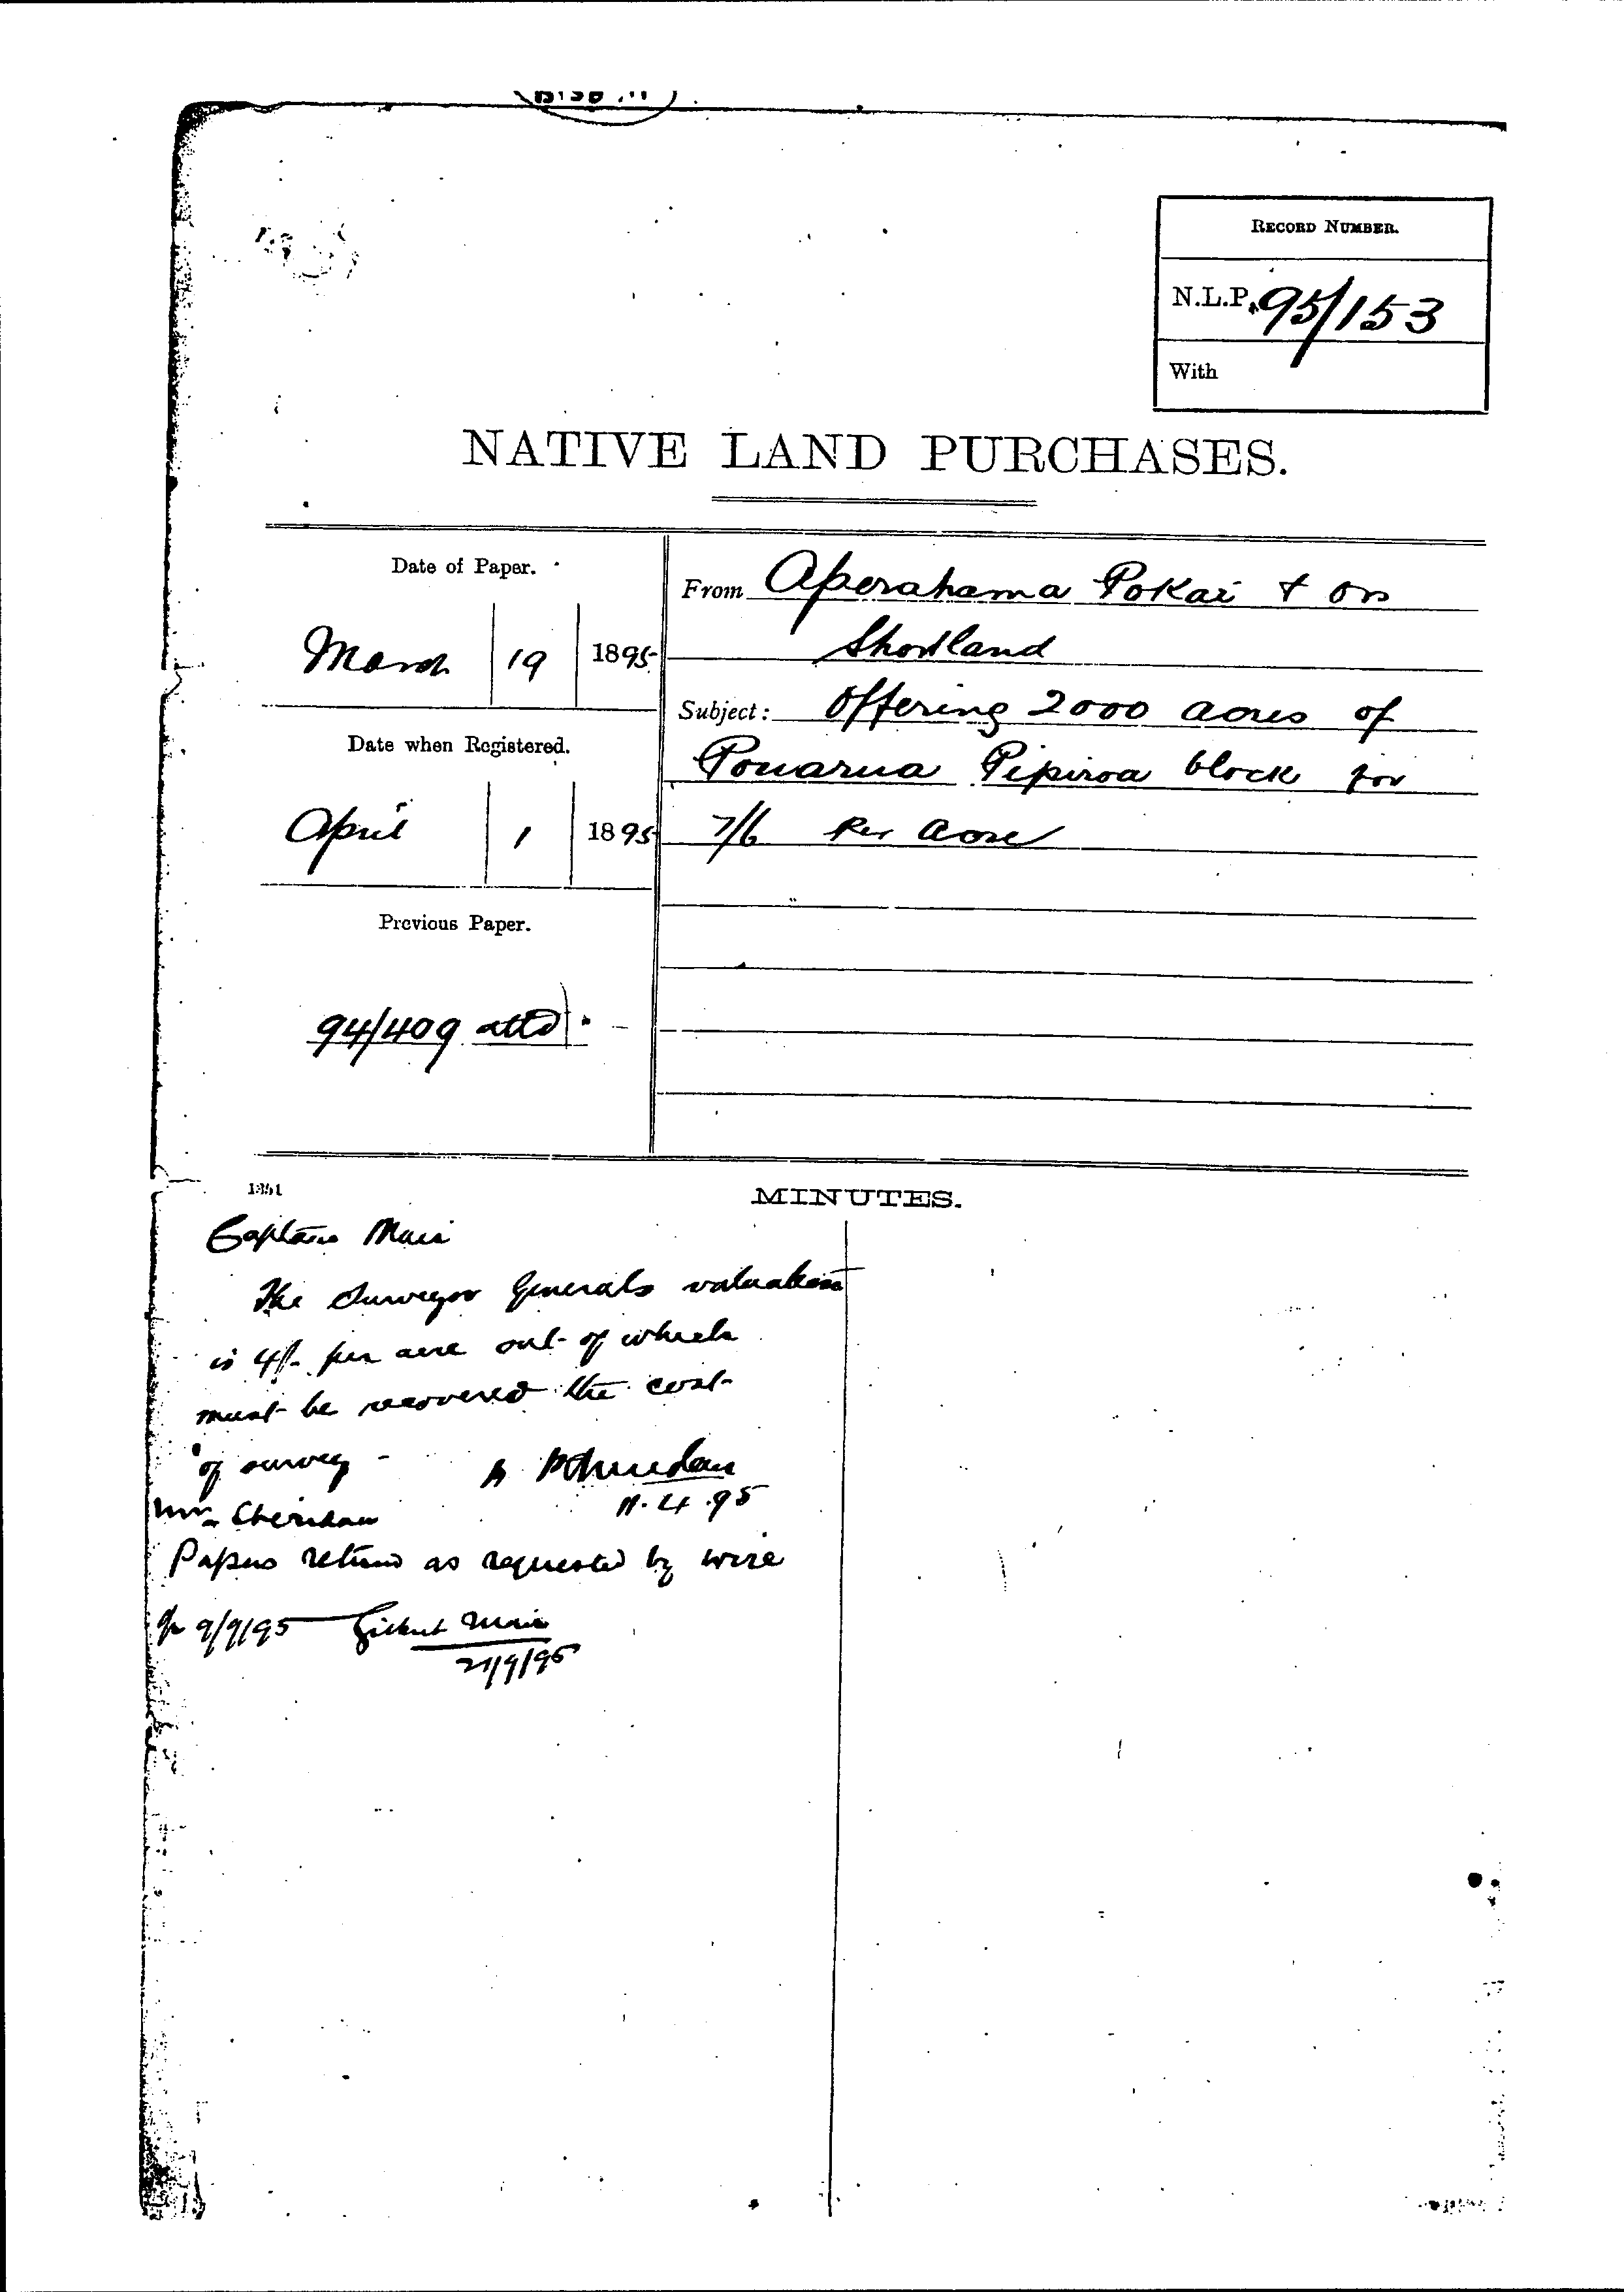 RECORD NUMBER.
N.L.P. 95/153
With
NATIVE LAND PURCHASES.
Date of Paper.
March 19 1895
Date when Registered.
April 1 1895
Previous Paper.
94/409 attd
From Aperahama Pokai & ors
Shortland
Subject: Offering 2000 acres of
Pouarua Pipiroa block for
7/6 per acre
1351
MINUTES.
Captain Mair
The Surveyor Generals valuation
is 4/- per acre out of which
must be recovered the cost
of survey -
P Sheridan
11.4.95
Mr Sheridan
Papers returned as requested by wire
of 9/9/95 Gilbert Mair
21/9/95